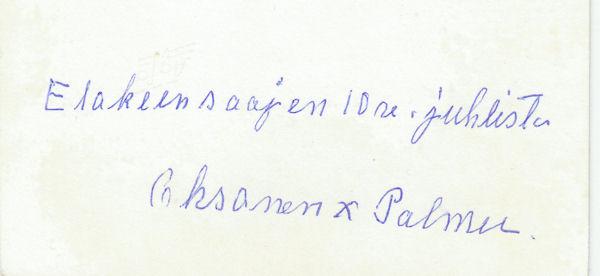 Elakeensaajen 10 v. juhlista
Oksanen x Palmu.